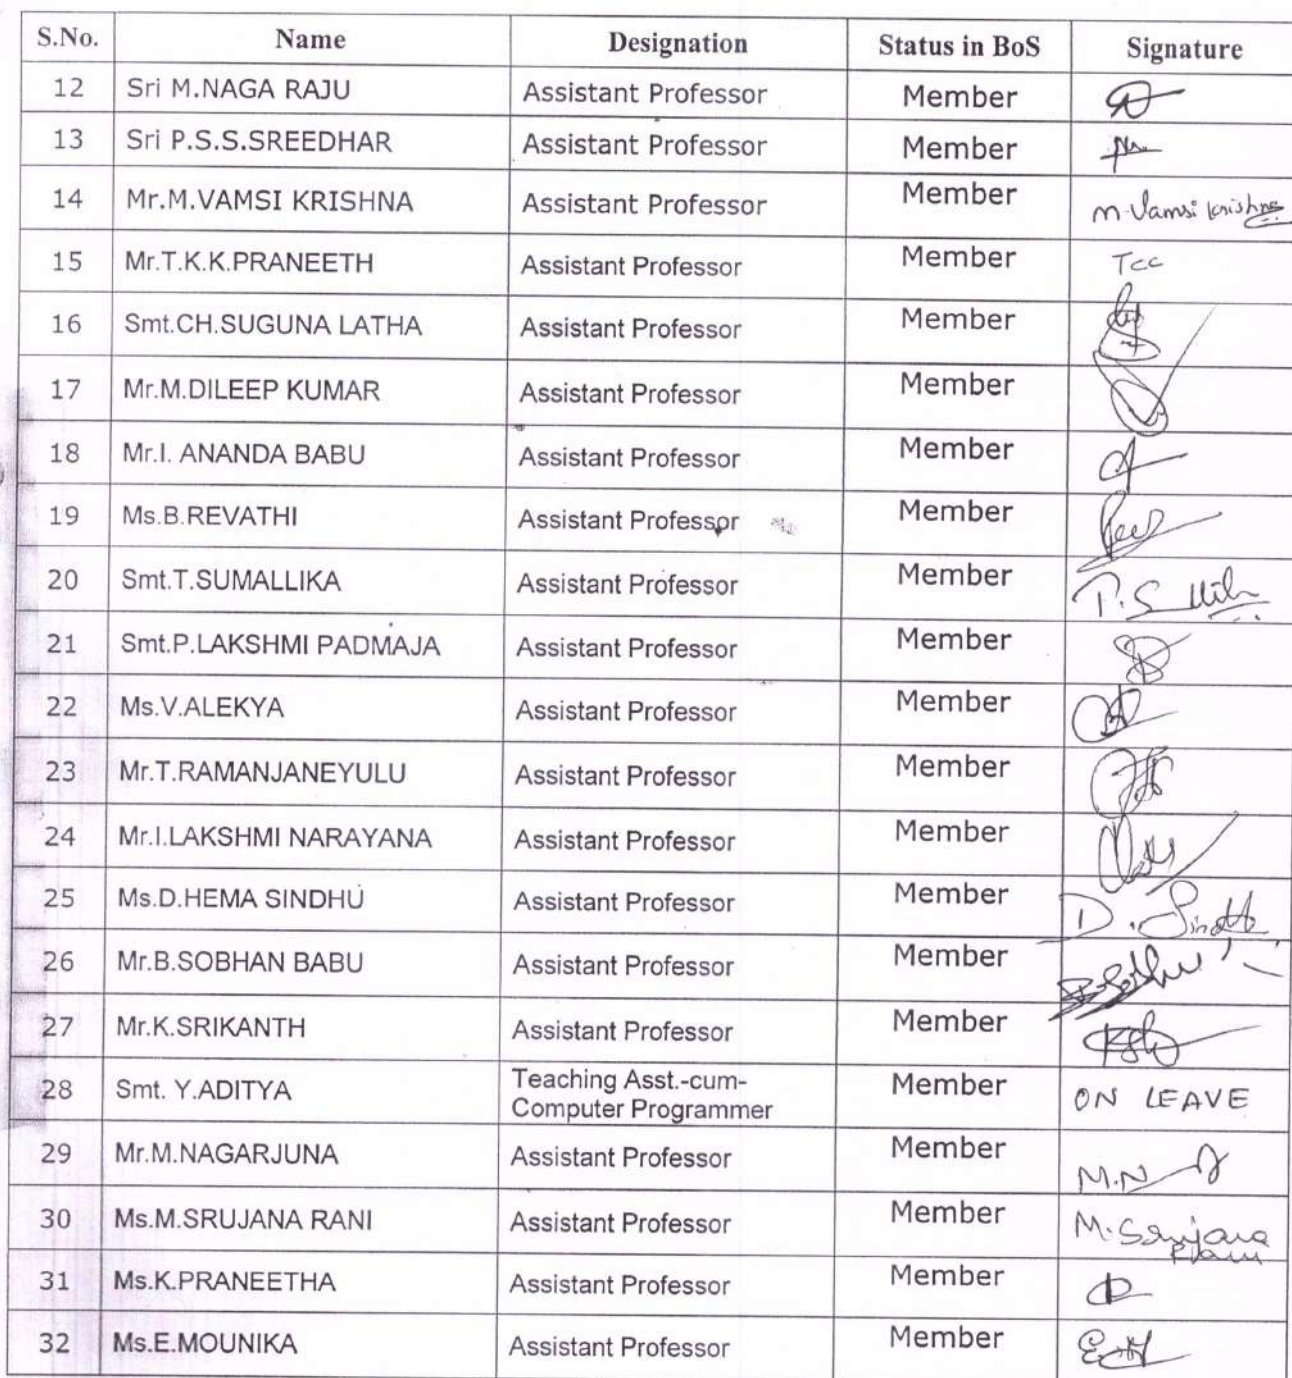 S.No. Name Designation Status in BoS Signature
12 Sri M.NAGA RAJU Assistant Professor Member
13 Sri P.S.S.SREEDHAR Assistant Professor Member
14 Mr.M.VAMSI KRISHNA Assistant Professor Member M.Vamsi Krishna
15 Mr.T.K.K.PRANEETH Assistant Professor Member
16 Smt.CH.SUGUNA LATHA Assistant Professor Member
17 Mr.M.DILEEP KUMAR Assistant Professor Member
18 Mr.I. ANANDA BABU Assistant Professor Member
19 Ms.B.REVATHI Assistant Professor Member
20 Smt.T.SUMALLIKA Assistant Professor Member
21 Smt.P.LAKSHMI PADMAJA Assistant Professor Member
22 Ms.V.ALEKYA Assistant Professor Member
23 Mr.T.RAMANJANEYULU Assistant Professor Member
24 Mr.I.LAKSHMI NARAYANA Assistant Professor Member
25 Ms.D.HEMA SINDHU Assistant Professor Member
26 Mr.B.SOBHAN BABU Assistant Professor Member
27 Mr.K.SRIKANTH Assistant Professor Member
28 Smt. Y.ADITYA Teaching Asst.-cum- Member ON LEAVE
Computer Programmer
29 Mr.M.NAGARJUNA Assistant Professor Member
30 Ms.M.SRUJANA RANI Assistant Professor Member M.Srujana
Rani
31 Ms.K.PRANEETHA Assistant Professor Member
32 Ms.E.MOUNIKA Assistant Professor Member